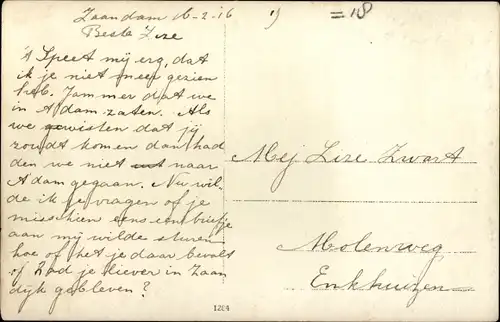 Zaandam 16-2-16
Beste Lize
't Speet mij erg, dat
ik je niet meer gezien
heb. Jammer dat we
in Adam zaten. Als
we gewisten dat jij
zoudt komen dan had
den we niet naar
Adam gegaan. Nu wil
de ik je vragen of je
misschien eens een briefje
aan mij wilde sturen
hoe of het je daar bevalt
of Had je liever in Zaan
dijk gebleven?
= 18
Mej Lize Zwart
Molenweg
Enkhuizen
1204